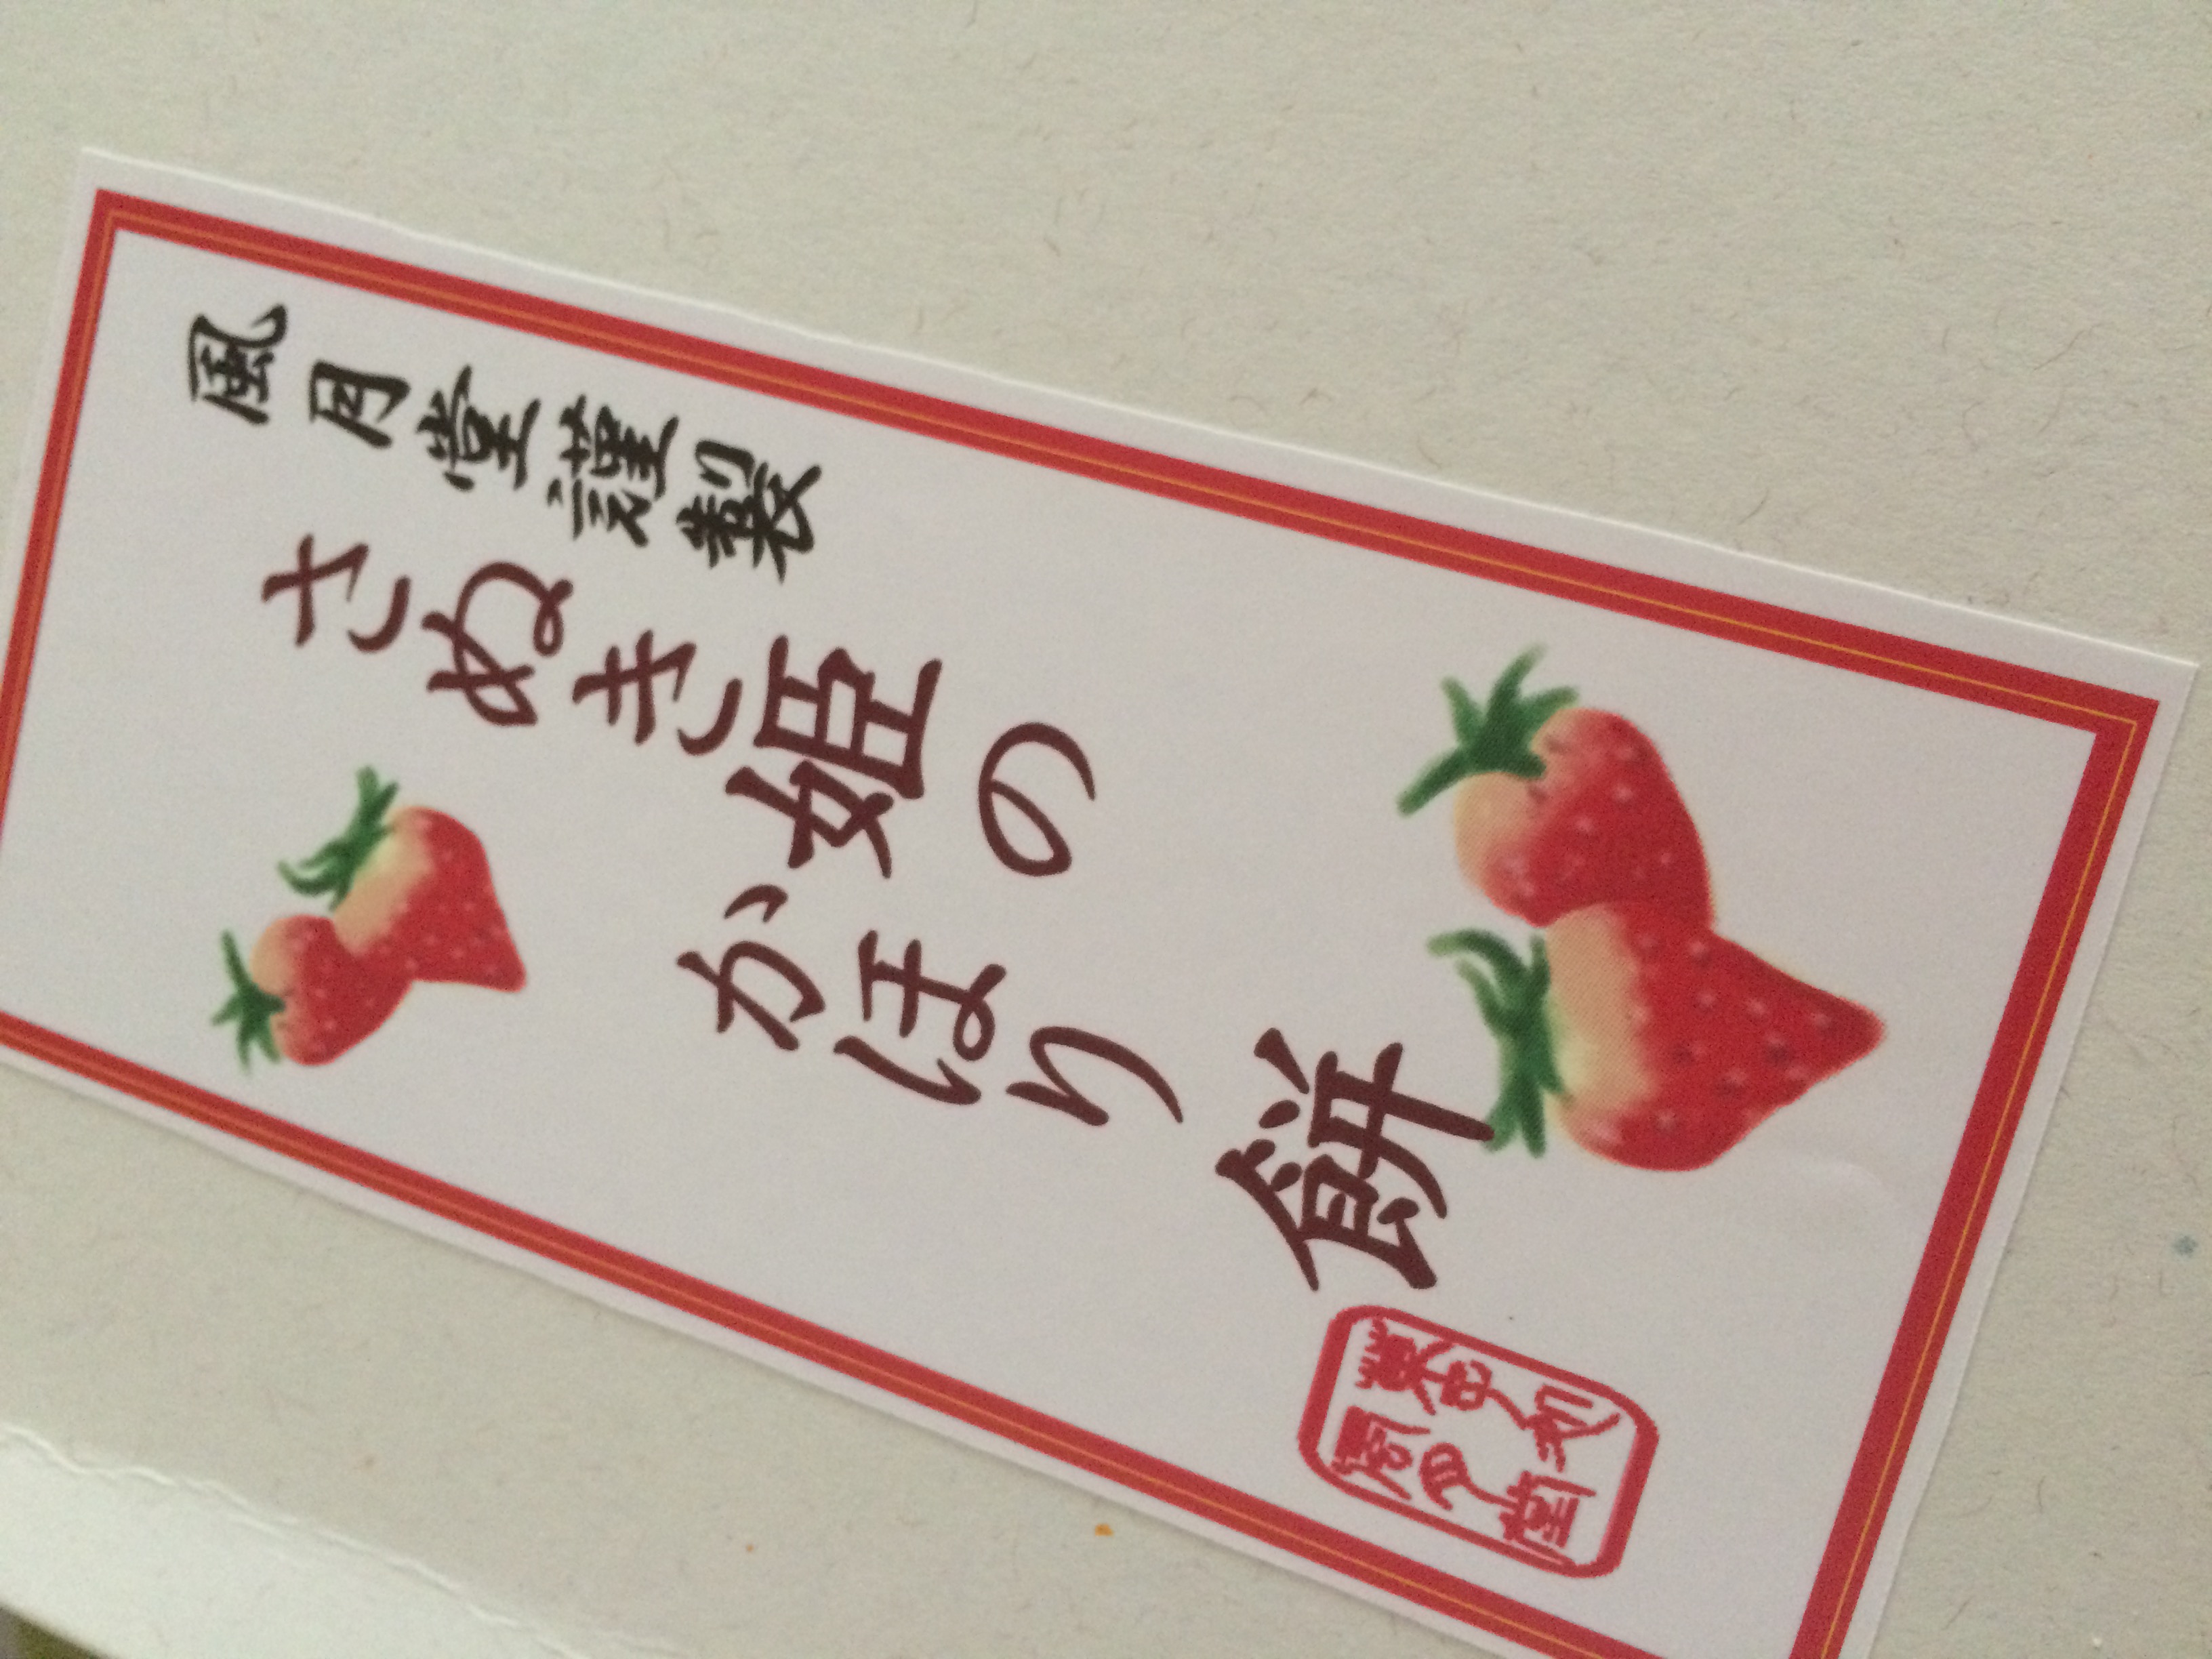 風月堂謹製
さぬき姫の
かほり餅
風月堂